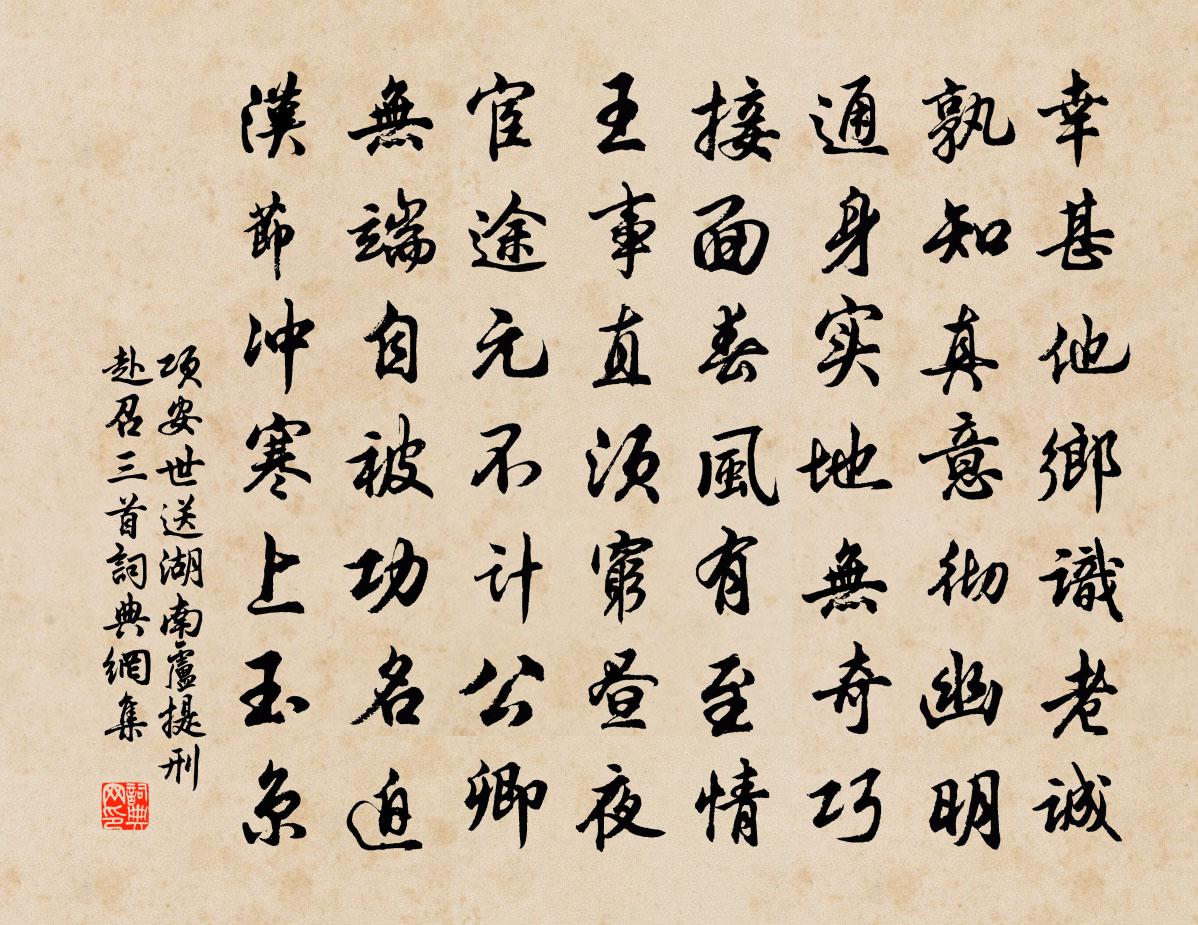 幸甚他鄉識老诚
孰知真意彻幽明
通身实地無奇巧
接面春風有至情
王事直须窮昼夜
宦途元不计公卿
無端自被功名迫
漢節冲寒上玉京
项安世送湖南盧提刑
赴召三首詞典網集
詞典
网印